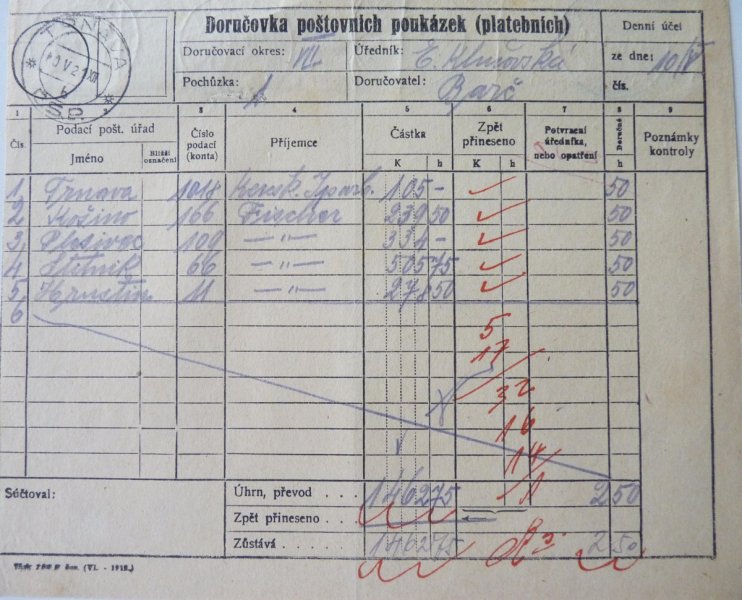 TRNAVA
10.V.21.XII
b
* ČSP. *
Doručovka poštovních poukázek (platebních)
Denní účet
Doručovací okres: VII
Úředník: E.
ze dne: 10/V
Pochůzka: 1
Doručovatel: Barč
čís.
1 2 3 4 5 6 7 8 9
Čís. Podací pošt. úřad Číslo podací (konta) Příjemce Částka Zpět přineseno Potvrzení úředníka, nebo opatření Doručné Poznámky kontroly
Jméno Bližší označení K h K h h
1 Trnava 1018 105 - 50
2 166 Fischer 239 50 50
3 109 — " — 334 - 50
4 Štítnik 66 — " — 505 75 50
5 11 — " — 278 50 50
6
5
17
32
16
14
1
Súčtoval:
Úhrn, převod . . . 1462 75 2 50
Zpět přineseno . . .
Zůstává . . . . 1462 75 2 50
(VI. - 1919.)